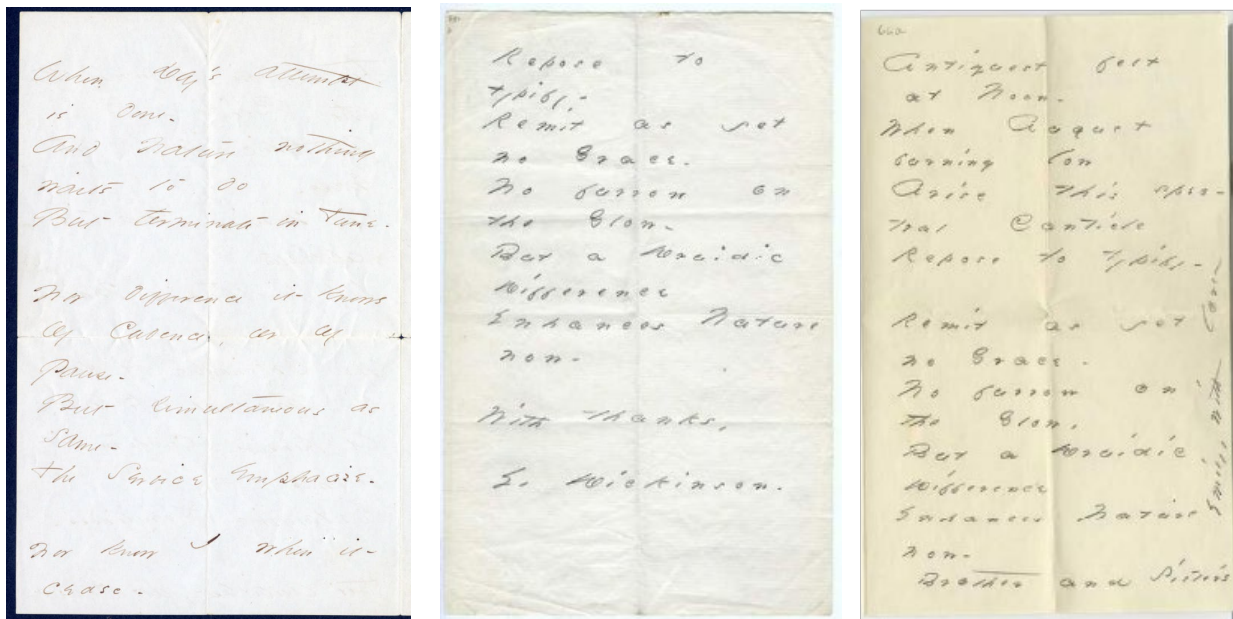 When Day's attempt
is done -
And Nature nothing
waits to do
But terminate in Tune -
Nor difference it knows
Of Cadence, or of
Pause -
But simultaneous as
Same -
The Service emphacize -
Nor know I when it
cease -
Repose to
typify -
Remit as yet
no Grace -
No furrow on
the Glow -
But a Druidic
Difference
Enhances Nature
now -
With thanks,
E. Dickinson -
Antiquest felt
at Noon -
When August
burning low
Arise this spec-
tral Canticle
Repose to typify -
Remit as yet
no Grace -
No furrow on
the Glow,
But a Druidic
Difference
Enhances Nature
now -
Brother and Sister's
Emily, with love -